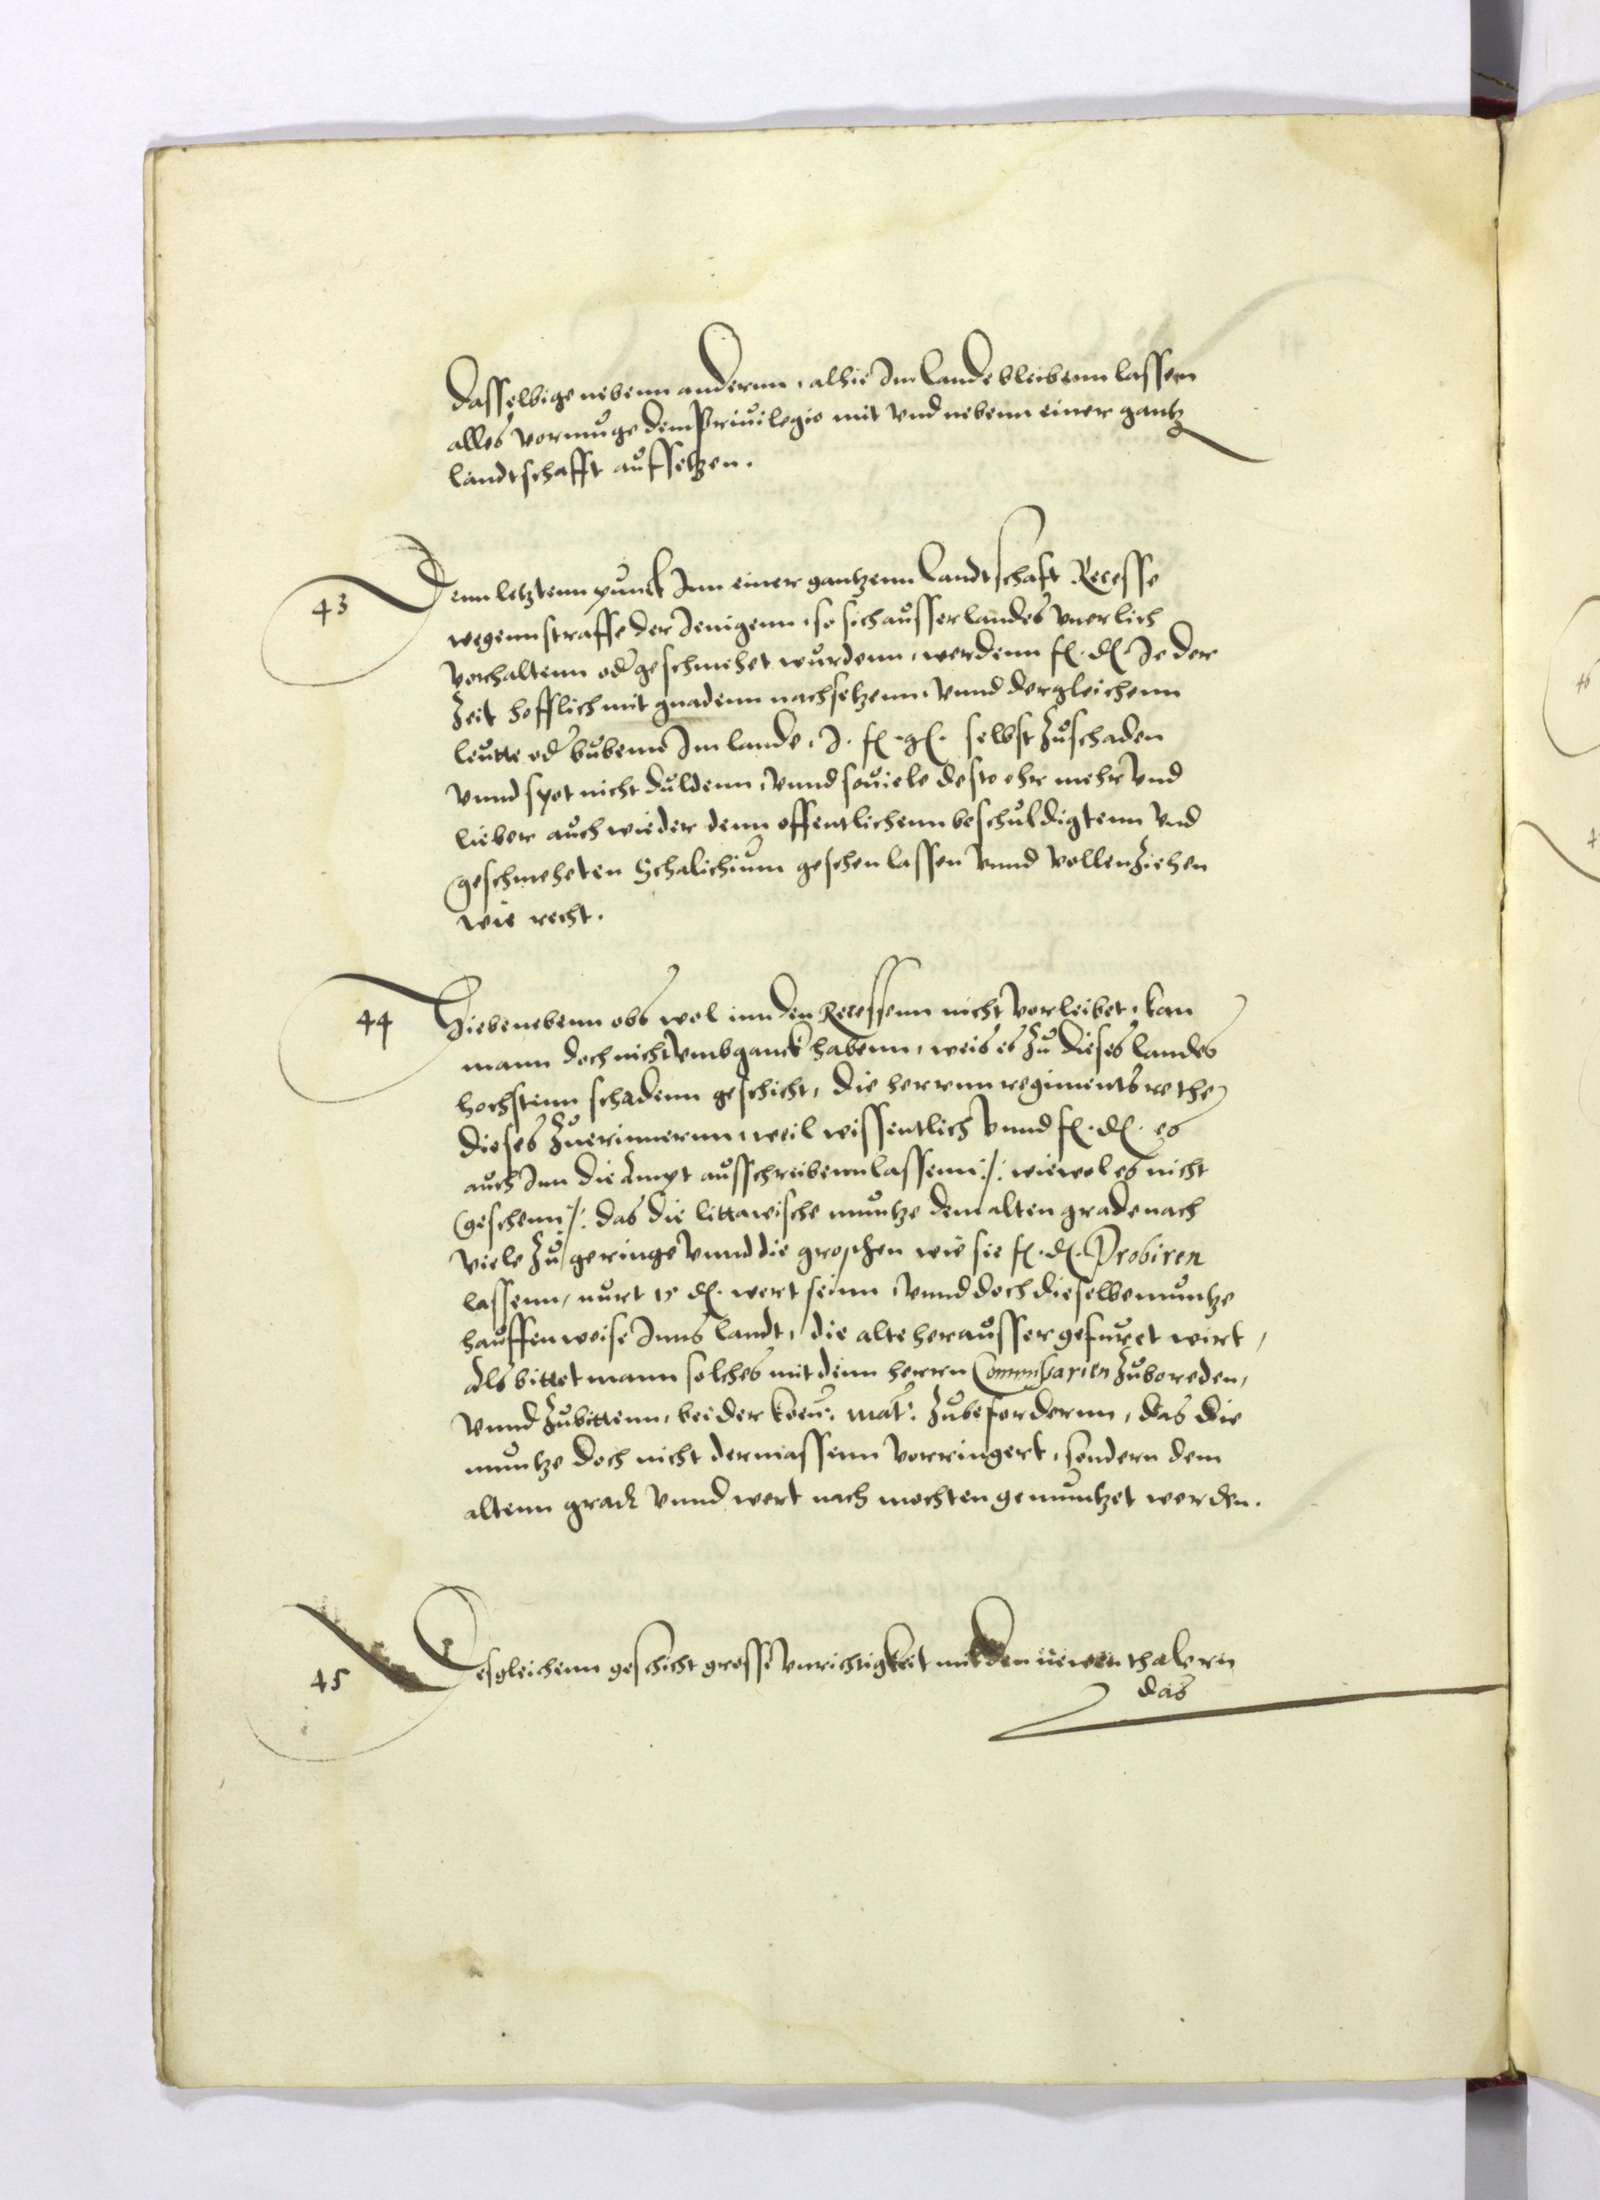 Dasselbige nebenn andernn, alhie Im Lande bleibenn lassen
alles vormuge dem Priuilegio mit vnd nebenn einer gantz
landtschafft auffsetzen.
43 Denn letztenn punct Inn einer gantzenn Landtschaft Recesse
wegenn straffe der Jenigenn, so sich ausser landes vnerlich
vorhaltenn oder geschmehet wurdenn, werdenn f. d. Jeder
Zeit hofflich mit gnadenn nachsetzenn, vnnd dergleichenn
leutte oder bubenn Im lande, J. f. g. selbst zuschaden
vnnd spot nicht duldenn, vnnd souiele desto ehr mehr vnd
lieber auch wieder denn offentlichenn beschuldigtenn vnd
geschmeheten Schalichium geschen lassen vnnd vollenziehen
wie recht.
44 Hiebenebenn obs wol inn den Recessenn nicht vorleibet, kan
mann doch nicht vmbganck habenn, weis es zu dieses landes
hochstenn schadenn geschicht, die herrnn regiments rethe
dieses zuerinnernn, weil wissentlich vnnd f. d. es
auch Inn die Ampt ausschreibenn lassenn /: wiewol es nicht
geschenn /: das die littawische muntze dem alten grade nach
viele zu geringe vnnd die groschen wie sie f. d. Probiren
lassenn, nurt 15 d. wert seinn, vnnd doch dieselbe muntze
hauffen weise Inns landt, die alte herausser gefuret wirt,
Als bittet mann solches mit denn herrn Commissarien zubereden,
vnnd zubittenn, bei der koen: mat: zubefordernn, das die
muntze doch nicht dermassenn vorringert, sondern dem
altenn grad vnnd wert nach mochten gemuntzet werden.
45 Desgleichenn geschicht grosse vnrichtigkeit mit den newen thalern
das